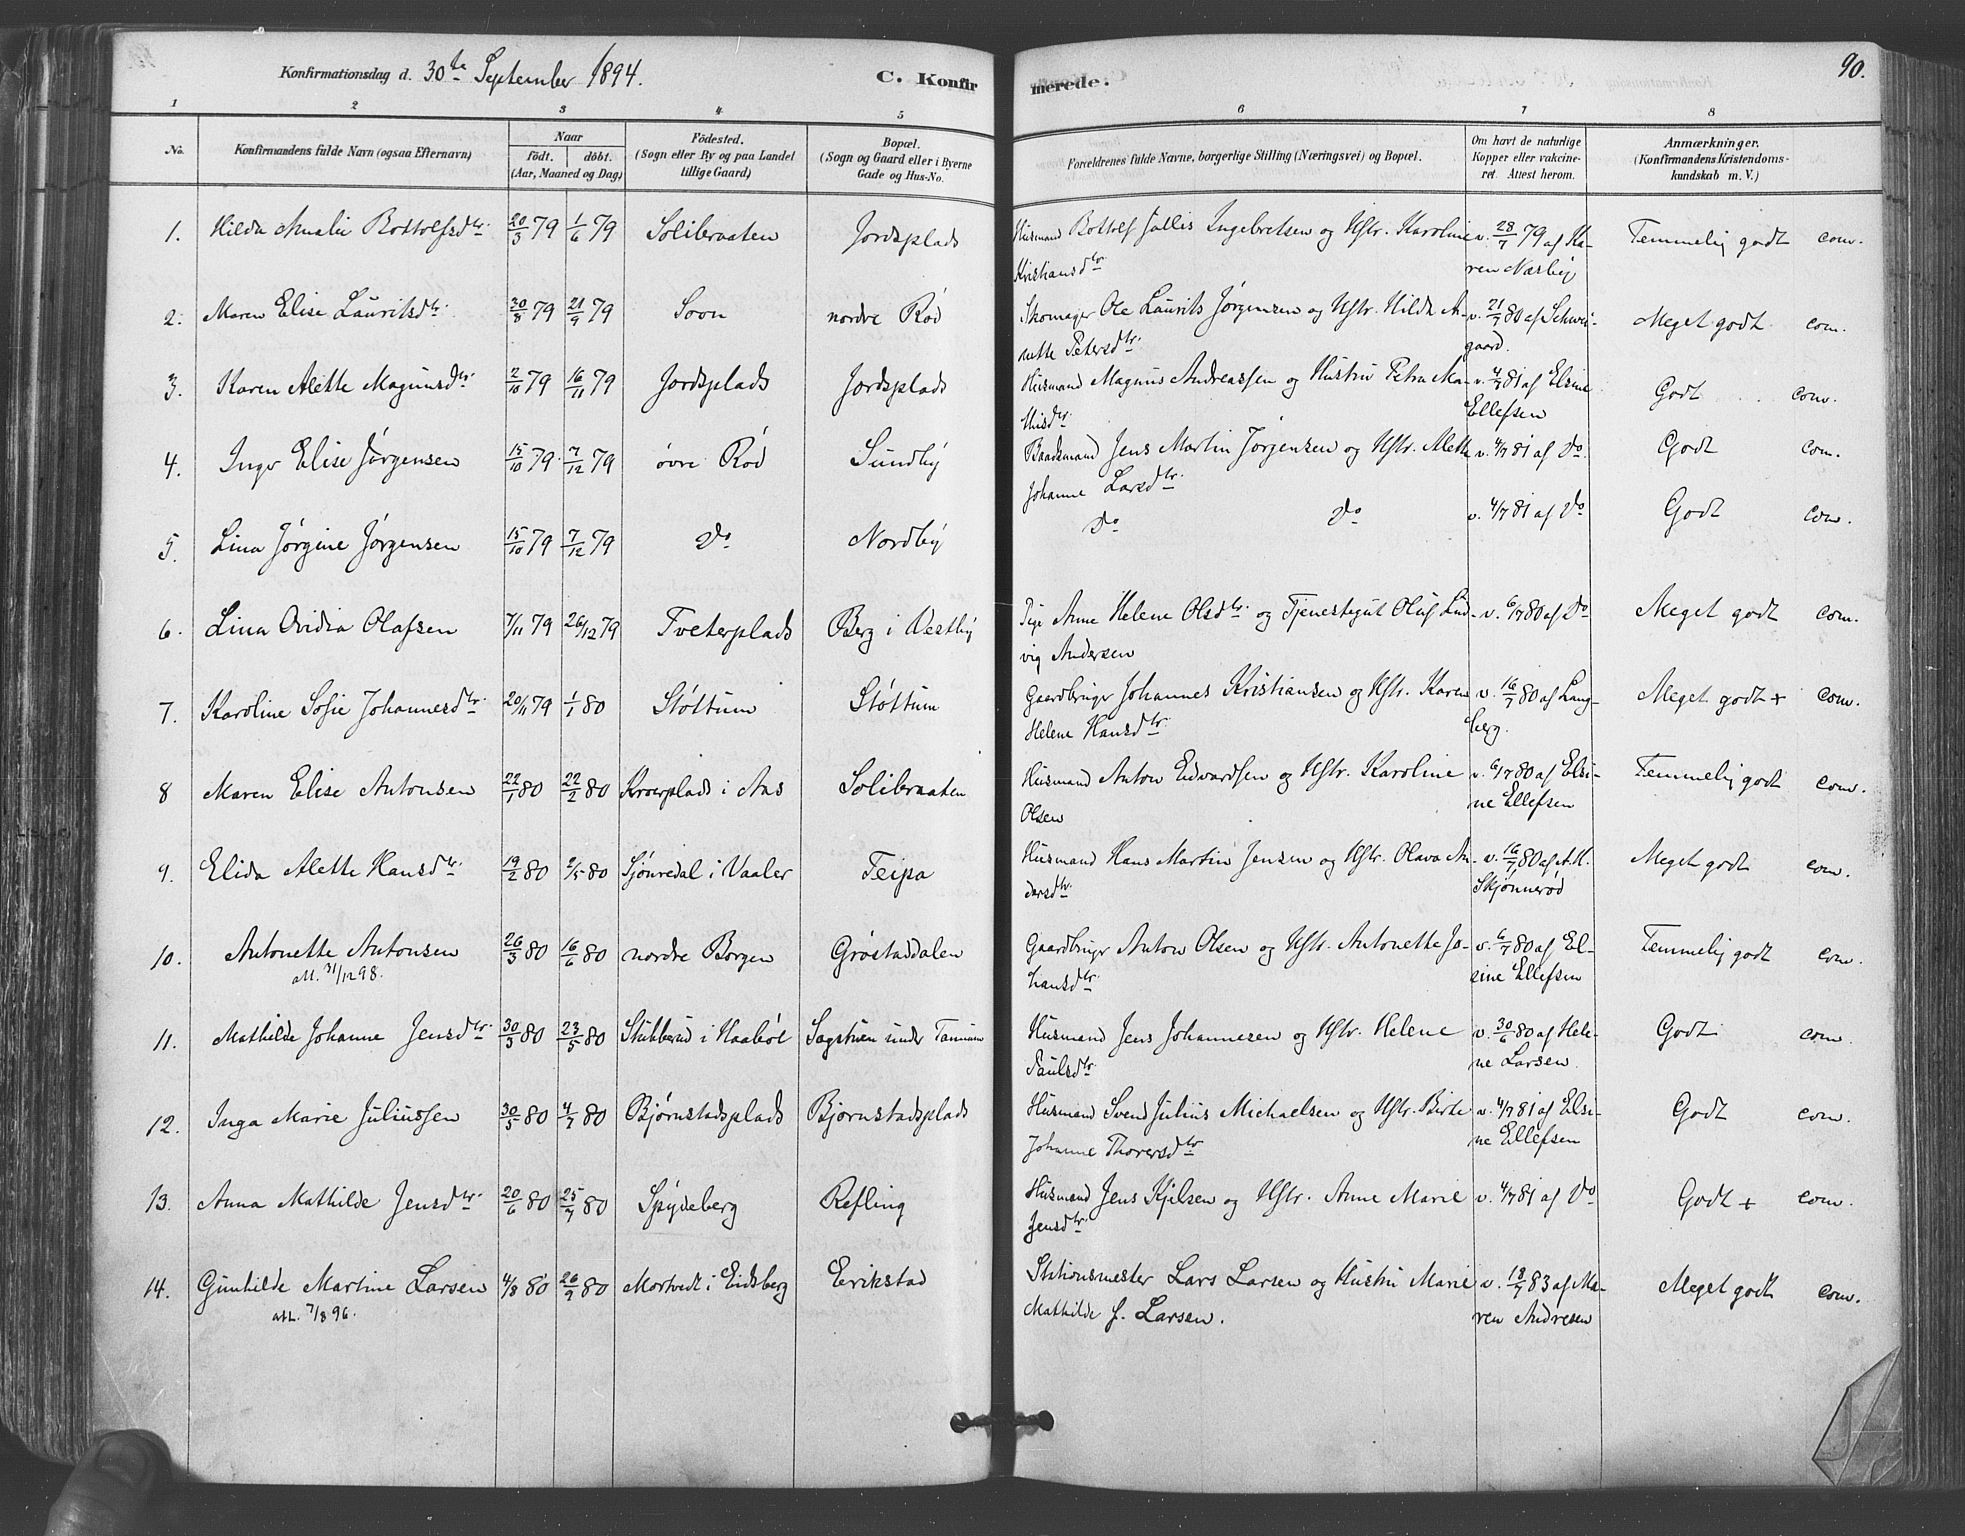 Konfirmationsdag d. 30te September 1894. C. Konfirmerede. 90.
1 2 3 4 5 6 7 8
No. Konfirmandens fulde Navn (ogsaa Efternavn) Naar födt. döbt. (Aar, Maaned og Dag) Födested. (Sogn eller By og paa Landet tillige Gaard) Bopæl. (Sogn og Gaard eller i Byerne Gade og Hus-No. Forældrenes fulde Navne, borgerlige Stilling (Næringsvei) og Bopæl. Om havt de naturlige Kopper eller vakcineret. Attest herom. Anmærkninger. (Konfirmandens Kristendomskundskab m. V.)
1. Hilda Amalie Bottolfsdtr. 20/3 79 1/6 79 Solibraaten Jordsplads Husmand Bottolf Julius Ingebretsen og Hstr. Karoline v. 28/7 79 af Ka- Temmelig godt com.
Kristiansdtr ren Næsby
2. Maren Elise Lauritsdtr. 30/8 79 21/9 79 Soon nordre Rød Skomager Ole Laurits Jørgensen og Hstr. Hilda A- v. 21/7 80 af Schwei- Meget godt com.
nette Petersdtr. gaard.
3. Karen Alette Magnusdtr. 2/10 79 16/11 79 Jordsplads Jordsplads Husmand Magnus Andreassen og Hustru Petra Ma- v. 4/7 81 af Elsine Godt com.
thisdtr. Ellefsen
4. Inga Elise Jørgensen 15/10 79 7/12 79 øvre Rød Sundby Baadsmand Jens Martin Jørgensen og Hstr. Alette v. 4/7 81 af Do. Godt com.
Johanne Larsdtr.
5. Lina Jørgine Jørgensen 15/10 79 7/12 79 Do Nordby Do Do v. 4/7 81 af Do Godt com.
6. Lina Ovidia Olafsen 7/11 79 26/12 79 Tveterplads Berg i Vestby Pige Anne Helene Olsdtr. og Tjenestegut Oluf Lud- v. 6/7 80 af Do Meget godt com.
vig Andersen
7. Karoline Sofie Johannesdtr. 20/11 79 1/1 80 Støttum Støttum Gaardbruger Johannes Kristiansen og Hstr. Karen v. 16/7 80 af Lang- Meget godt + com.
Helene Hansdtr. berg.
8 Maren Elise Antonsen 22/1 80 22/2 80 Kroerplads i Aas Solibraaten Husmand Anton Edvardsen og Hstr. Karoline v. 6/7 80 af Elsi- Temmelig godt com.
Olsen ne Ellefsen
9. Elida Alette Hansdtr. 19/2 80 2/5 80 Sjønredal i Vaaler Teipa Husmand Hans Martin Jensen og Hstr. Olava An- v. 16/7 80 af A. H. Meget godt com.
dersdtr. Skjønnerød
10. Antonette Antonsen 26/3 80 16/6 80 nordre Borgen Grøstaddalen Gaardbruger Anton Olsen og Hstr. Antonette Jo- v. 6/7 80 af El- Temmelig godt com.
att. 31/12 98. hansdtr. sine Ellefsen
11. Mathilde Johanne Jensdtr. 30/3 80 23/5 80 Stubberud i Haabøl Sagstuen under Tannum Husmand Jens Johannesen og Hstr. Helene v. 30/6 80 af Hele- Godt com.
Paulsdtr. ne Larsen
12. Inga Marie Juliussen 30/5 80 4/7 80 Bjørnstadsplads Bjørnstadsplads Husmand Svend Julius Michaelsen og Hstr. Birte v. 4/7 81 af Elsi- Godt com.
Johanne Thorersdtr ne Ellefsen
13. Anna Mathilde Jensdtr. 20/6 80 25/7 80 Spydeberg Refling Husmand Jens Kjelsen og Hstr. Anne Marie v. 4/7 81 af Do Godt + com.
Jensdtr.
14. Gunhilde Martine Larsen 4/8 80 26/9 80 Mortvedt i Eidsberg Erikstad Stationsmester Lars Larsen og Hustru Marie v. 18/7 83 af Ma- Meget godt com.
att. 7/8 96. Mathilde f. Larsen. ren Andresen